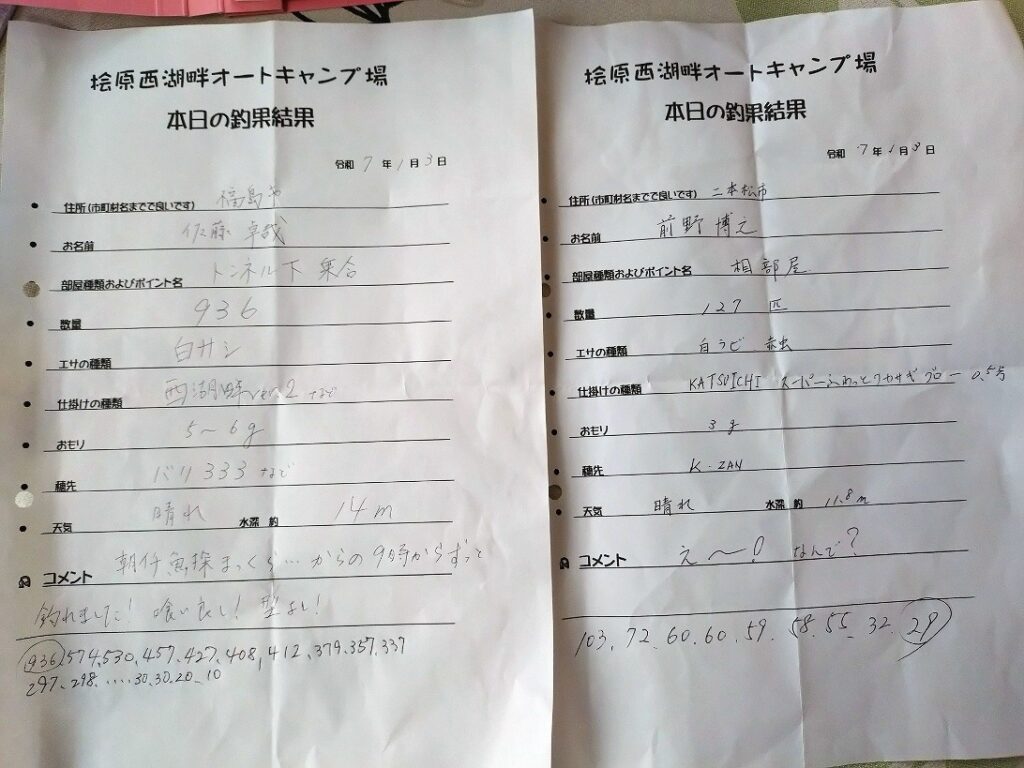 桧原西湖畔オートキャンプ場
本日の釣果結果
令和 7 年 1 月 3 日
住所(市町村名までで良いです) 福島市
お名前 佐藤 卓哉
部屋種類およびポイント名 トンネル下 集合
数量 936
エサの種類 白サシ
仕掛けの種類 西湖畔ver.2 など
おもり 5〜6g
穂先 バリ333など
天気 晴れ 水深 約 14m
コメント 朝仟魚探まっくら…からの9時からずっと
釣れました! 喰い良し! 型よし!
936,574,530,457,427,408,412,379,357,337
297、298、....30,30,20、10
桧原西湖畔オートキャンプ場
本日の釣果結果
令和 7 年 1 月 3 日
住所(市町村名までで良いです) 二本松市
お名前 前野 博之
部屋種類およびポイント名 相部屋
数量 127 匹
エサの種類 白ラビ、赤虫
仕掛けの種類 KATSUICHI スーパーふわっとワカサギ グロー 0.5号
おもり 3g
穂先 K-ZAN
天気 晴れ 水深 約 11.8m
コメント え〜! なんで?
103、72、60、60、59、58、55、32、29